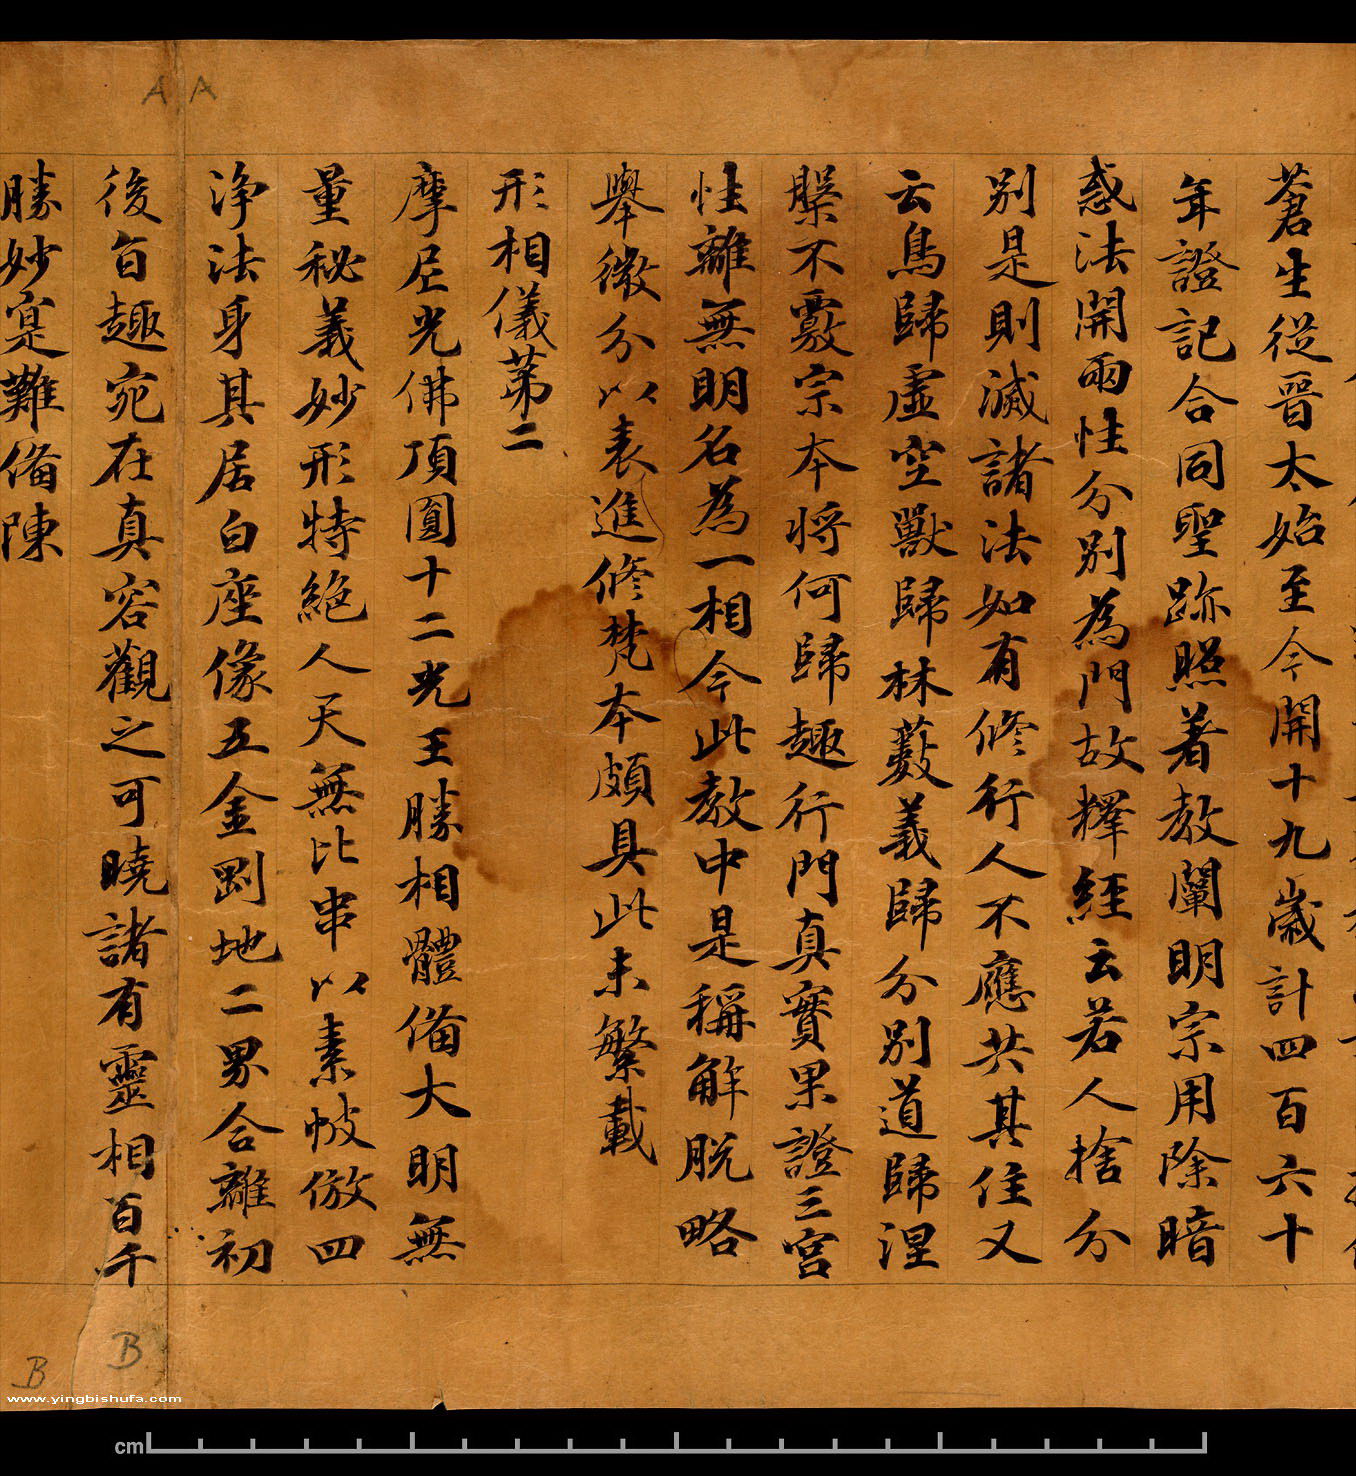 蒼生從晉太始至今開十九歲計四百六十
年證記合同聖跡照著教闡明宗用除暗
惑法開兩性分別為門故釋經云若人捨分
別是則滅諸法如有修行人不應共其住又
云鳥歸虛空獸歸林藪義歸分別道歸涅
槃不覈宗本將何歸趣行門真實果證三宮
性離無明名為一相今此教中是稱解脫略
舉微分以表進修梵本頗具此未繁載
形相儀第二
摩尼光佛頂圓十二光王勝相體備大明無
量秘義妙形特絕人天無比串以素帔倣四
淨法身其居白座像五金剛地二界合離初
後旨趣宛在真容觀之可曉諸有靈相百千
勝妙寔難備陳
A A
B B
www.yingbishufa.com
cm